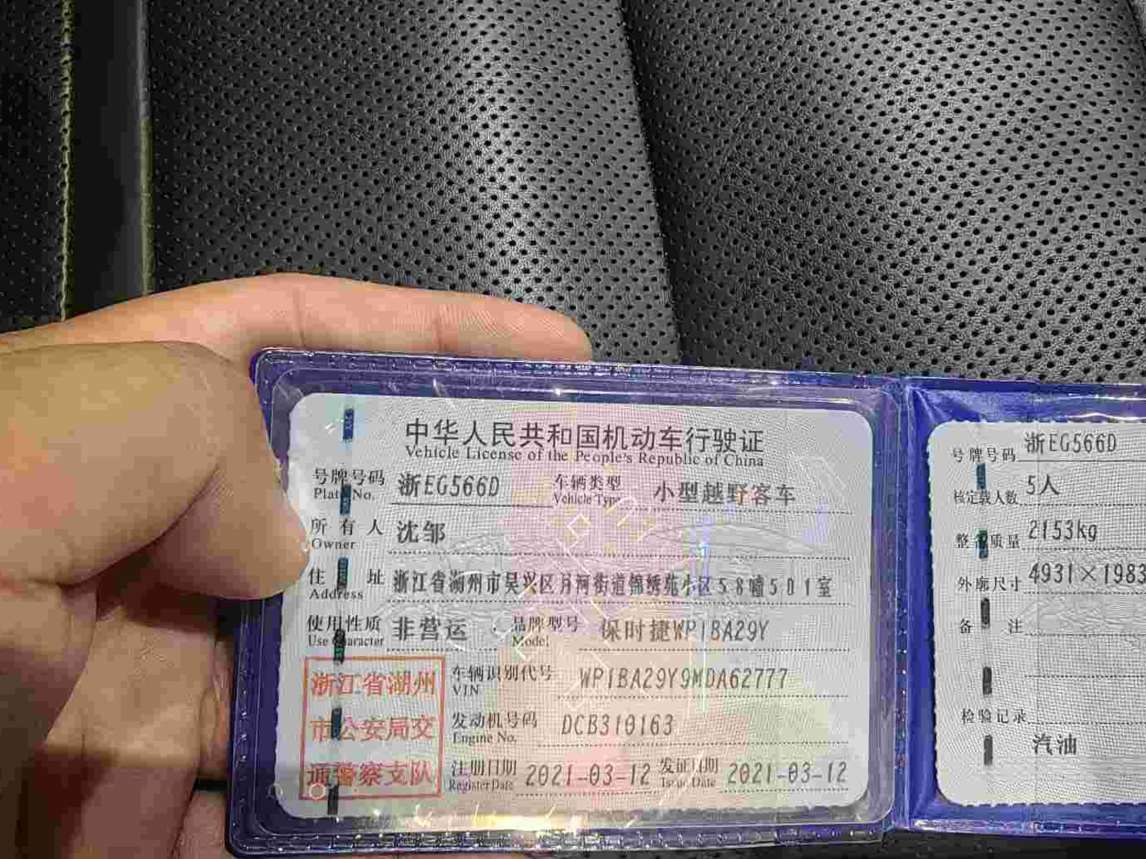 中华人民共和国机动车行驶证
Vehicle License of the People's Republic of China
号牌号码 浙EG566D 车辆类型 小型越野客车
Plate No. Vehicle Type
所有人 沈邹
Owner
住址 浙江省湖州市吴兴区月河街道锦绣苑小区58幢501室
Address
使用性质 非营运 品牌型号 保时捷WP1BA29Y
Use Character Model
浙江省湖州 车辆识别代号 WP1BA29Y9MDA62777
VIN
市公安局交 发动机号码 DCB310163
Engine No.
通警察支队 注册日期 2021-03-12 发证日期 2021-03-12
Register Date Issue Date
号牌号码 浙EG566D
核定载人数 5人
整备质量 2153kg
外廓尺寸 4931×1983
备注
检验记录
汽油